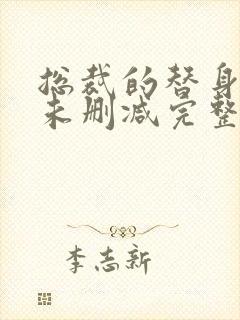 总裁的替身
未删减完整
李志新